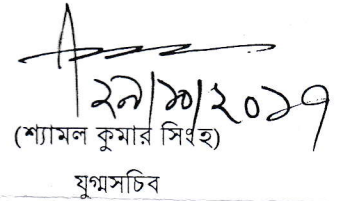 ২৯/১০/২০১৭
(শ্যামল কুমার সিংহ)
যুগ্মসচিব